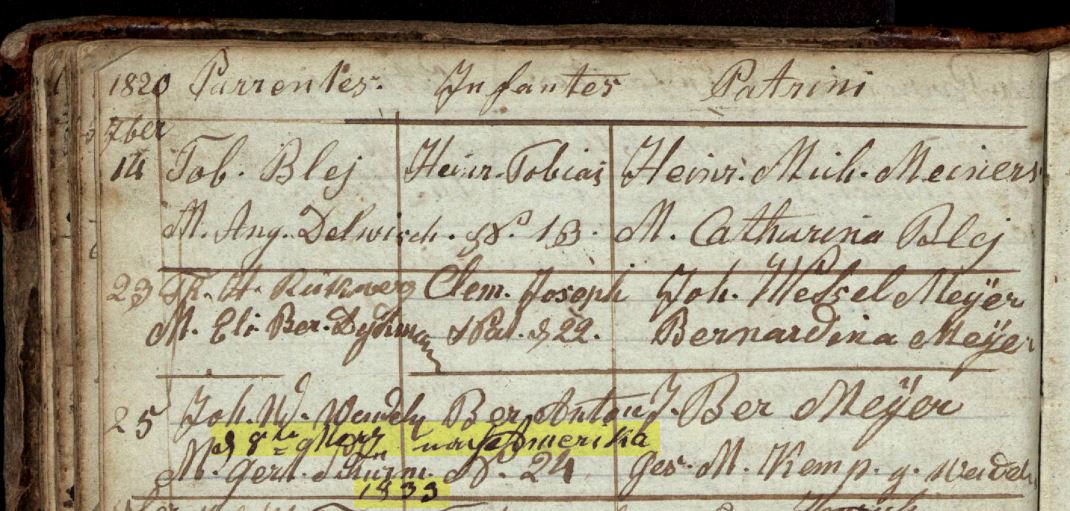 1820 Parrentes. Infantes Patrini
7ber
14 Tob. Blej Heinr. Tobias Heinr. Mich. Meiners
M. Ang. Delwisch. N. 13. M. Catharina Blej
23 Clem. Joseph Joh. Wessel Meÿer
M. Elis. Ber. Nat. 22. Bernardina Meÿer
25 Joh. W. Ber. Anton J. Ber Meÿer
d 8 Merz nach Amerika
M. Gert. N. 24 ges. M. Kemp. g.
1833